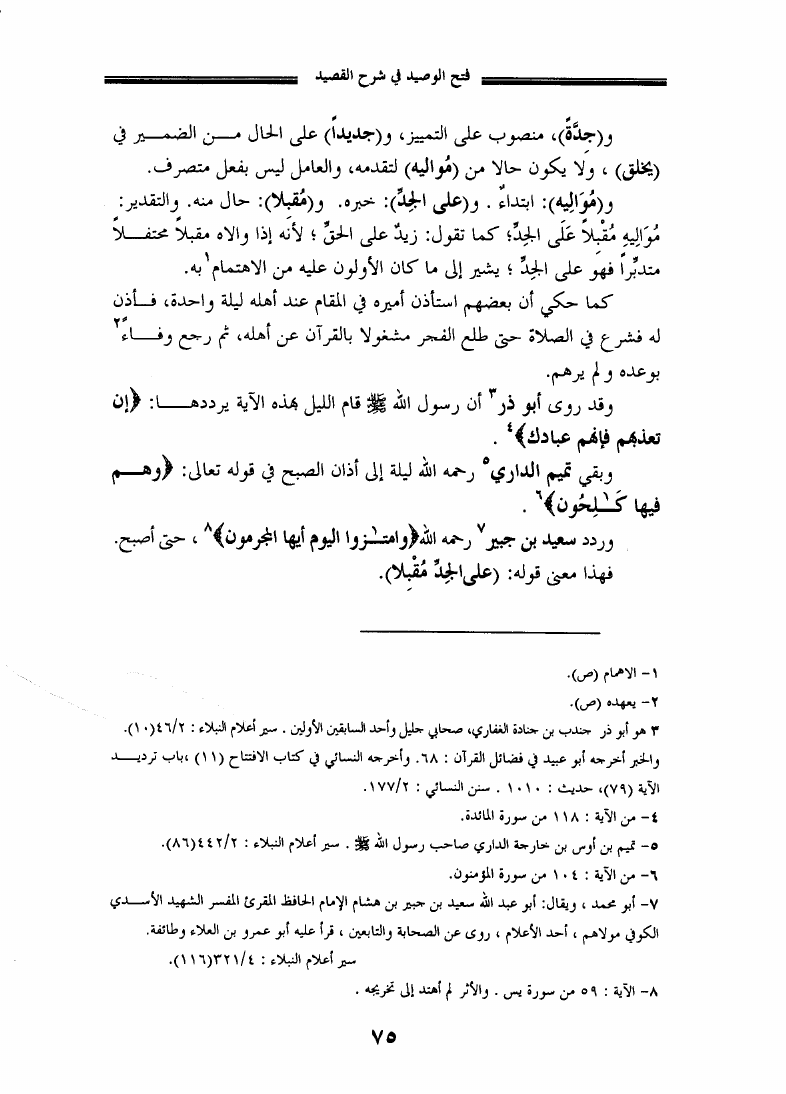 فتح الوصيد في شرح القصيد
و(جِدَّةً)، منصوب على التمييز، و(جديداً) على الحال مـــن الضمـــير في
(يخلق) ، ولا يكون حالا من (مواليه) لتقدمه، والعامل ليس بفعل متصرف.
و(مُوَالِيهِ): ابتداءٌ . و(على الجِدِّ): خبره. و(مُقبلا): حال منه. والتقدير:
مُوَالِيهِ مُقْبِلاً عَلَى الجِدِّ؛ كما تقول: زيدٌ على الحقِّ ؛ لأنه إذا والاه مقبلاً محتفـــلاً
متدبِّراً فهو على الجِدِّ ؛ يشير إلى ما كان الأولون عليه من الاهتمام١ به.
كما حكي أن بعضهم استأذن أميره في المقام عند أهله ليلة واحدة، فـــأذن
له فشرع في الصلاة حتى طلع الفجر مشغولا بالقرآن عن أهله، ثم رجع وفـــاءً٢
بوعده ولم يرهم.
وقد روى أبو ذر٣ أن رسول الله ﷺ قام الليل بهذه الآية يرددهـــا: ﴿إن
تعذبهم فإنهم عبادك﴾٤ .
وبقي تميم الداري٥ رحمه الله ليلة إلى أذان الصبح في قوله تعالى: ﴿وهـــم
فيها كَـٰلِحُون﴾٦ .
وردد سعيد بن جبير٧ رحمه الله﴿وامتـٰزوا اليوم أيها المجرمون﴾٨ ، حتى أصبح.
فهذا معنى قوله: (على الجِدِّ مُقْبِلا).
١- الاهمام (ص).
٢- يعهده (ص).
٣ هو أبو ذر جندب بن جنادة الغفاري، صحابي جليل وأحد السابقين الأولين . سير أعلام النبلاء : ٤٦/٢(١٠).
والخبر أخرجه أبو عبيد في فضائل القرآن : ٦٨. وأخرجه النسائي في كتاب الافتتاح (١١) ،باب ترديـــد
الآية (٧٩)، حديث : ١٠١٠ . سنن النسائي : ١٧٧/٢.
٤- من الآية : ١١٨ من سورة المائدة.
٥- تميم بن أوس بن خارجة الداري صاحب رسول الله ﷺ . سير أعلام النبلاء : ٤٤٢/٢(٨٦).
٦- من الآية : ١٠٤ من سورة المؤمنون.
٧- أبو محمد ، ويقال: أبو عبد الله سعيد بن جبير بن هشام الإمام الحافظ المقرئ المفسر الشهيد الأســـدي
الكوفي مولاهم ، أحد الأعلام ، روى عن الصحابة والتابعين ، قرأ عليه أبو عمرو بن العلاء وطائفة.
سير أعلام النبلاء : ٣٢١/٤(١١٦).
٨- الآية : ٥٩ من سورة يس . والأثر لم أهتد إلى تخريجه .
٧٥